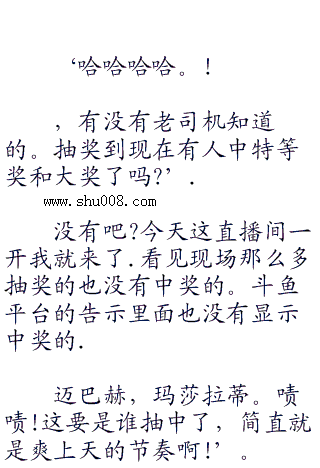 ‘哈哈哈哈。!
，有没有老司机知道
的。抽奖到现在有人中特等
奖和大奖了吗?’.
www.shu008.com
没有吧?今天这直播间一
开我就来了.看见现场那么多
抽奖的也没有中奖的。斗鱼
平台的告示里面也没有显示
中奖的.
迈巴赫，玛莎拉蒂。啧
啧!这要是谁抽中了，简直就
是爽上天的节奏啊!’。